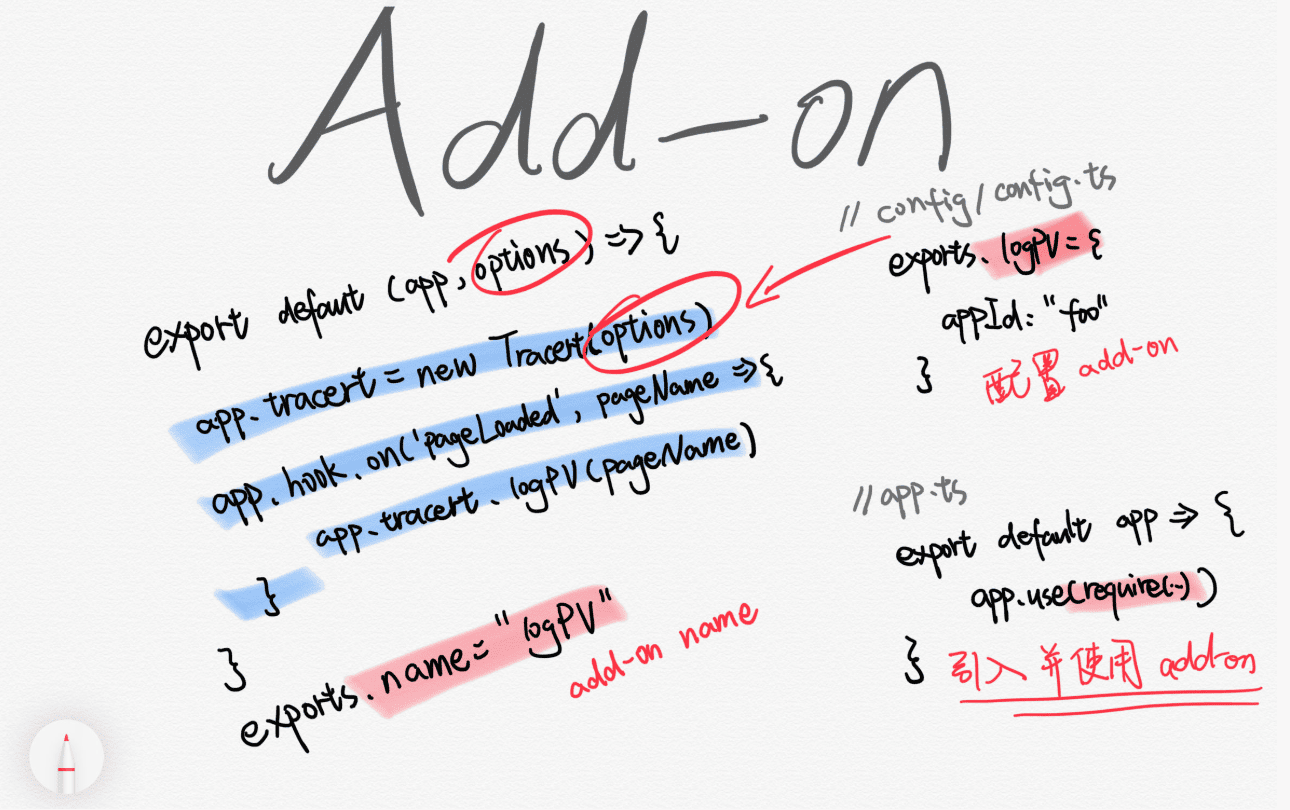 Add-on
export defaut (app, options) => {
app.tracert = new Tracert(options)
app.hook.on('pageLoaded', pageName => {
app.tracert.logPV(pageName)
}
}
exports.name = "logPV"
add-on name
// config/config.ts
exports.logPV = {
appId: "foo"
}
配置 add-on
// app.ts
export default app => {
app.use(require(...))
}
引入并使用 add-on